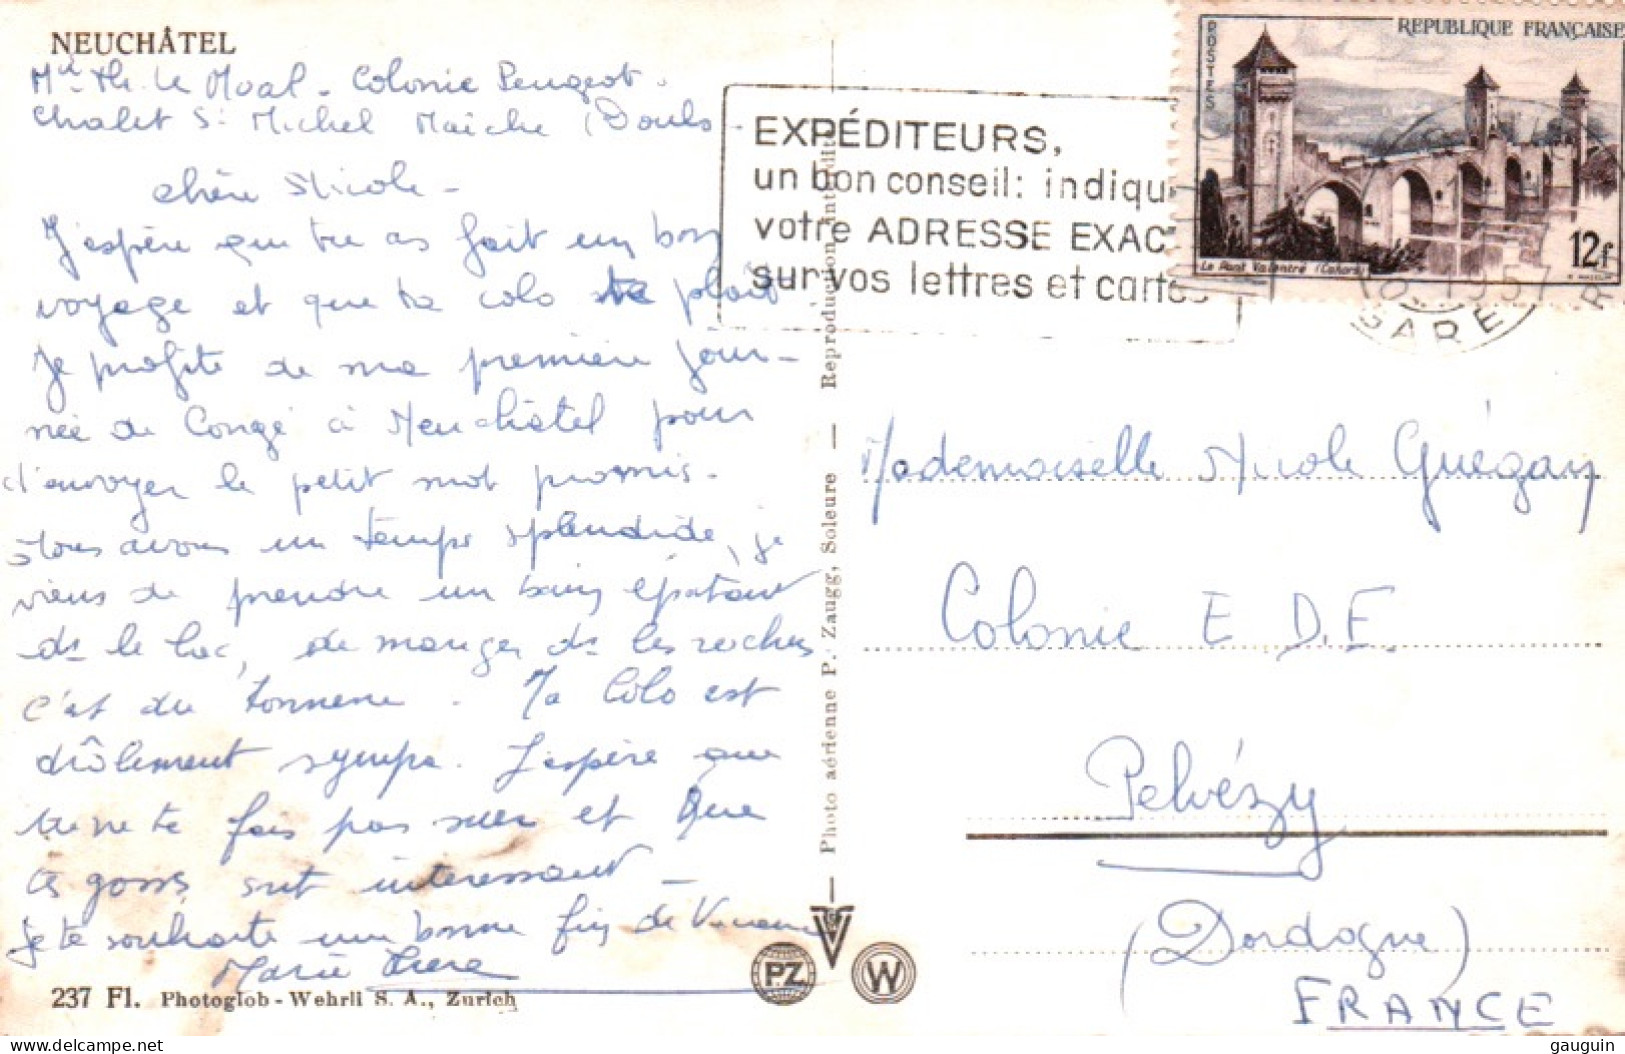 NEUCHÂTEL
Mlle Th. Le Moal - Colonie Peugeot.
Chalet St Michel Maîche (Doubs
Chère Nicole -
J'espère que tu as fait un bon
voyage et que ta colo te plaît
Je profite de ma première jour-
née de Congé à Neuchâtel pour
t'envoyer le petit mot promis.
Nous avons un temps splendide, je
viens de prendre un bain épatant
ds le lac, de manger ds les roches
c'est du tonnerre. Ta Colo est
drôlement sympa. J'espère que
tu ne te fais pas suer et que
tes gosses sont intéressants -
Je te souhaite une bonne fin de Vacances
Marie Thérèse
237 Fl. Photoglob - Wehrli S. A., Zurich
Photo aérienne P. Zaugg, Soleure — Reproduction interdite
P.Z.
W
EXPÉDITEURS,
un bon conseil: indiqu
votre ADRESSE EXAC
sur vos lettres et cartes
POSTES
REPUBLIQUE FRANÇAISE
Le Pont Valentré (Cahors)
12f
1957
GARE
Mademoiselle Nicole Guégan
Colonie E D.F.
Pelvézy
(Dordogne)
FRANCE
gauguin - delcampe.net